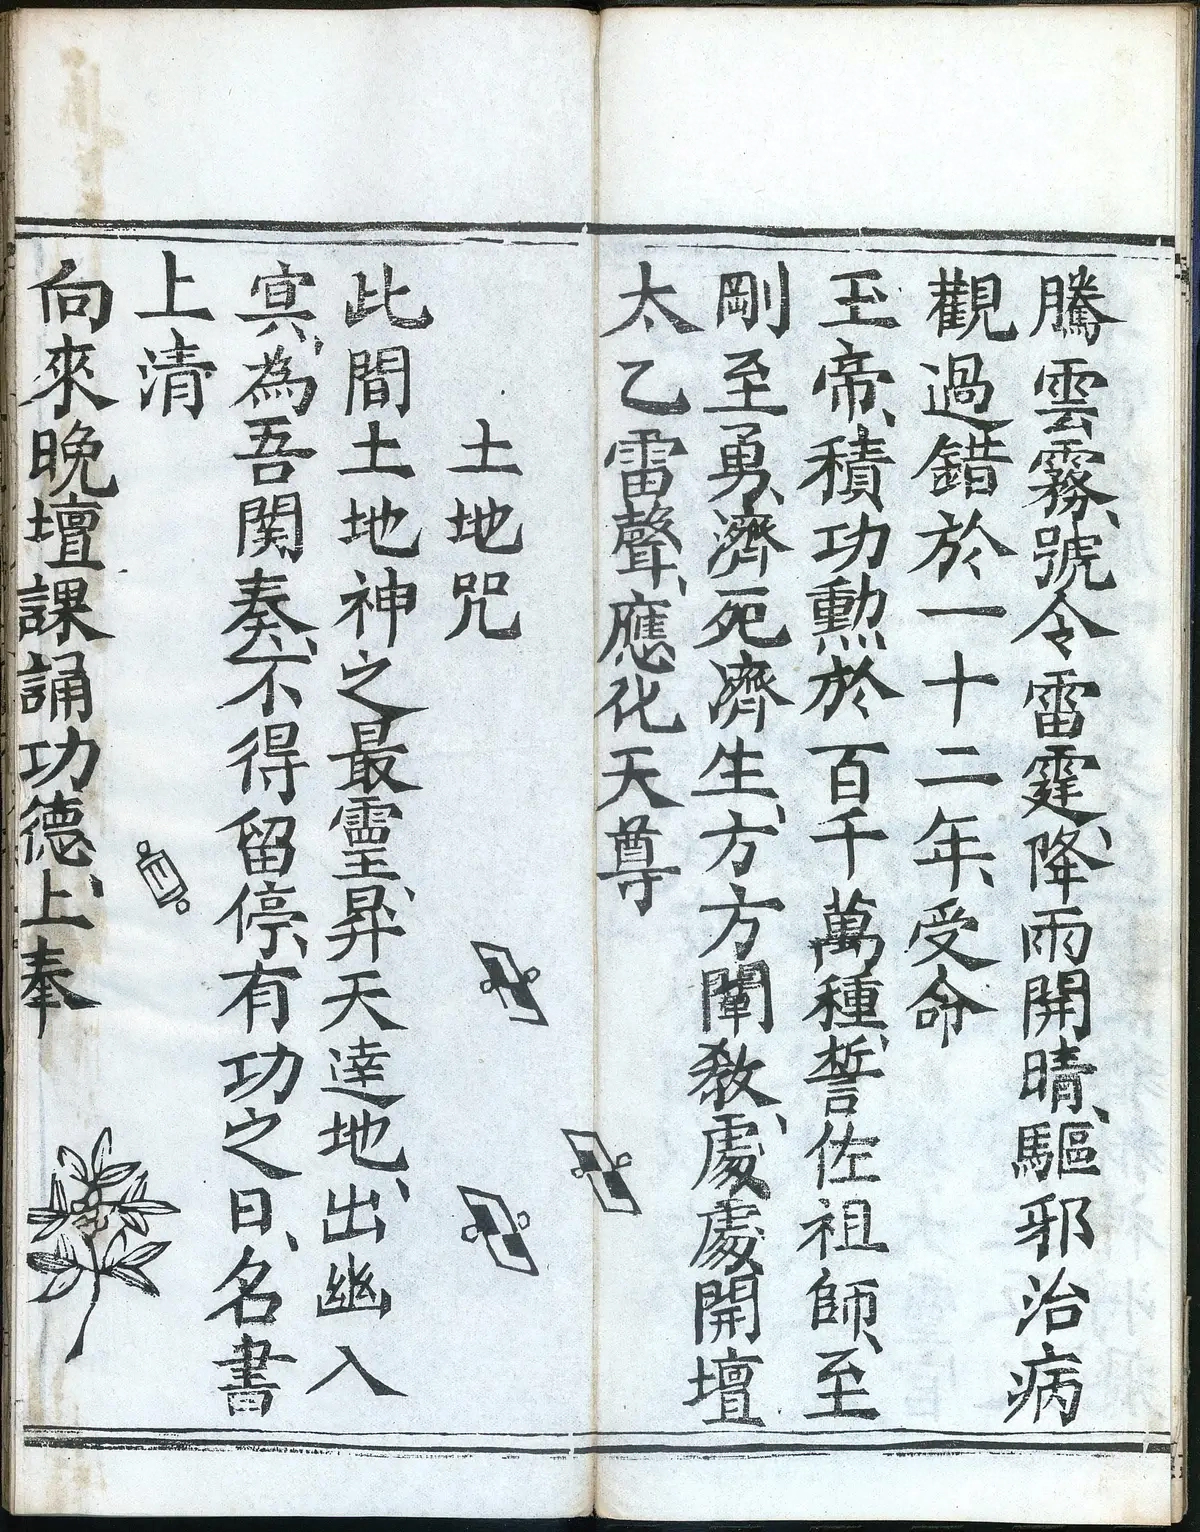 騰雲霧、號令雷霆、降雨開晴、驅邪治病
觀過錯於一十二年、受命
玉帝、積功勲於百千萬種、誓佐祖師、至
剛至勇、濟死濟生、方方闡教、處處開壇
太乙雷聲、應化天尊
土地咒
此間土地神之最靈、昇天達地、出幽入
冥、為吾関奏、不得留停、有功之日、名書
上清
向來晚壇課誦功德、上奉